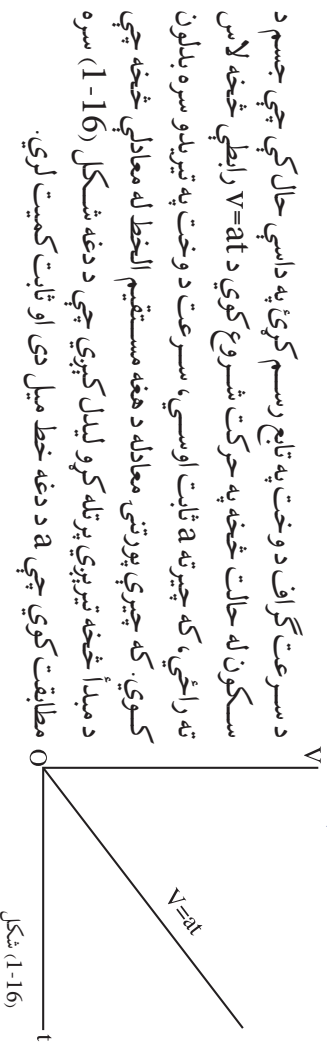 د سرعت گراف د وخت په تابع رسم کړئ په داسې حال کې چې جسم د
سکون له حالت څخه په حرکت شروع کوي د v=at رابطې څخه لاس
ته راځي، که چېرته a ثابت اوسي، سرعت د وخت په تېريدو سره بدلون
کوي. که چېرې پورتنۍ معادله د هغه مستقيم الخط له معادلې څخه چې
د مبدأ څخه تېرېږي پرتله کړو ليدل کېږي چې د دغه شکل (1-16) سره
مطابقت کوي چې a د دغه خط ميل دی او ثابت کميت لري.
V
V=at
O
t
(1-16) شکل